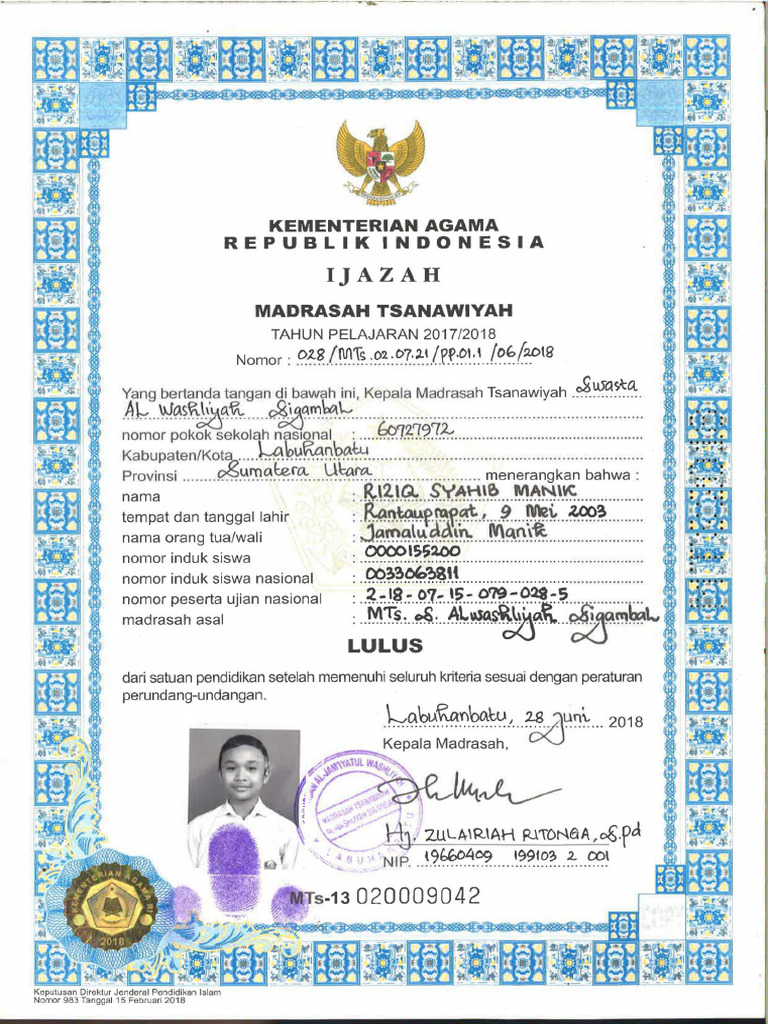 KEMENTERIAN AGAMA
REPUBLIK INDONESIA
IJAZAH
MADRASAH TSANAWIYAH
TAHUN PELAJARAN 2017/2018
Nomor : 028/MTs.02.07.21/PP.01.1/06/2018
Yang bertanda tangan di bawah ini, Kepala Madrasah Tsanawiyah Swasta
AL Washliyah Sigambal
nomor pokok sekolah nasional : 60727972
Kabupaten/Kota Labuhanbatu
Provinsi Sumatera Utara menerangkan bahwa :
nama : RIZIQ SYAHIB MANIK
tempat dan tanggal lahir : Rantauprapat, 9 Mei 2003
nama orang tua/wali : Jamaluddin Manik
nomor induk siswa : 0000155200
nomor induk siswa nasional : 0033063811
nomor peserta ujian nasional : 2-18-07-15-079-028-5
madrasah asal : MTs. S. ALwashliyah Sigambal
LULUS
dari satuan pendidikan setelah memenuhi seluruh kriteria sesuai dengan peraturan
perundang-undangan.
Labuhanbatu, 28 Juni 2018
Kepala Madrasah,
AL-JAM'IYATUL WASHLIYAH
MADRASAH TSANAWIYAH
Hj. ZULAIRIAH RITONGA, S.pd
NIP. 19660409 199103 2 001
MTs-13 020009042
KEMENTERIAN AGAMA RI
2018
Keputusan Direktur Jenderal Pendidikan Islam
Nomor 983 Tanggal 15 Februari 2018